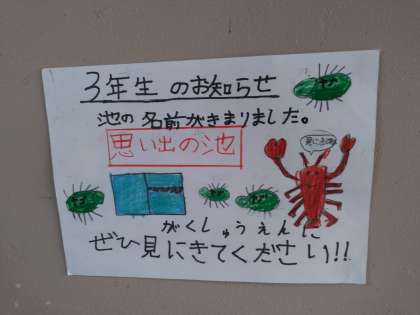 3年生 のお知らせ
池の 名前がきまりました。
思い出の池
がくしゅうえんに
ぜひ見にきてください!!